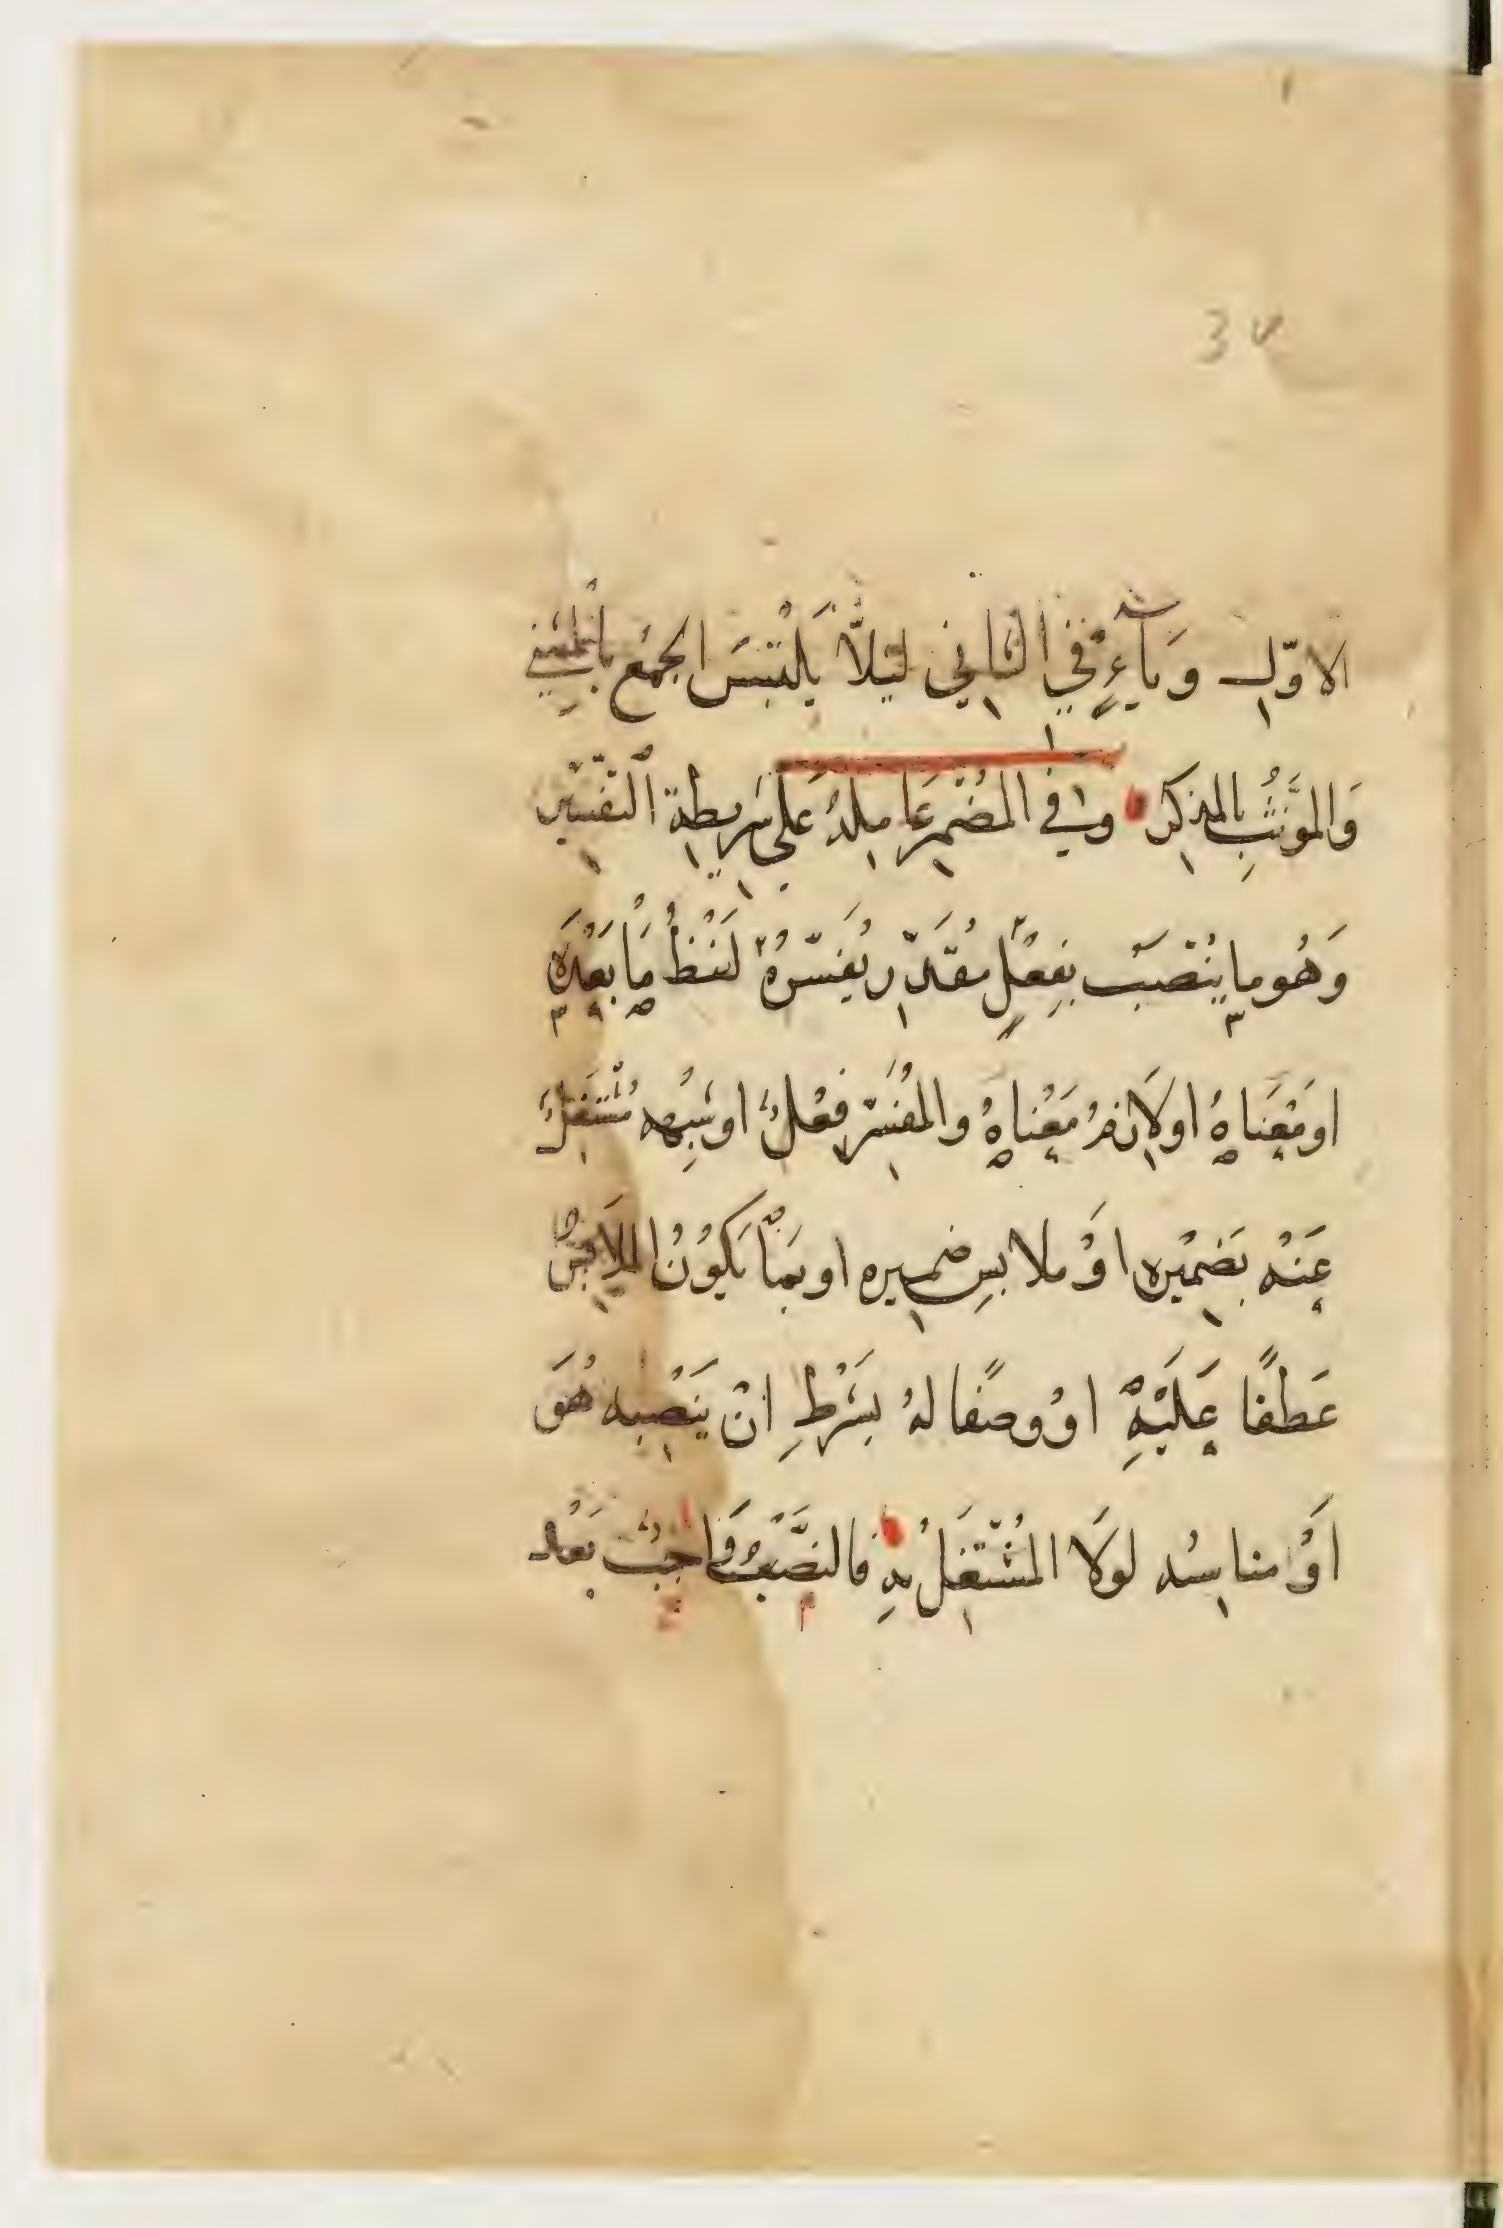 34
الاوّلِ وَيآءٍ في الثاني ليَلاَّ يَلْتبسَ الجمْع بالمثنى
وَالموَنَّثُ بالمذكر وفي المُضْمر عَامِلهُ عَلى شريطة التفسير
وَهُو ما يُنْصَبُ بفِعْلٍ مُقَدّر يُفَسّرهُ لَفْظُ مَا بَعْدَهُ
اومَعْنَاهُ اولاَزمُ مَعْناهُ والمُفسّر فعْل اوشِبْهه مُشْتَغل
عَنْهُ بضَميْره اوْ ملابسِ ضميره اوبمَا يَكوُنُ المُلابس
عَطفًا عَلَيْهِ اوْ وصفًا لهُ بشَرْطِ انْ يَنْصبه هُوَ
اَوْ مناسبُه لولاَ المُشْتَغَلُ بهِ فالنصَّبُ وَاجبٌ بَعْد